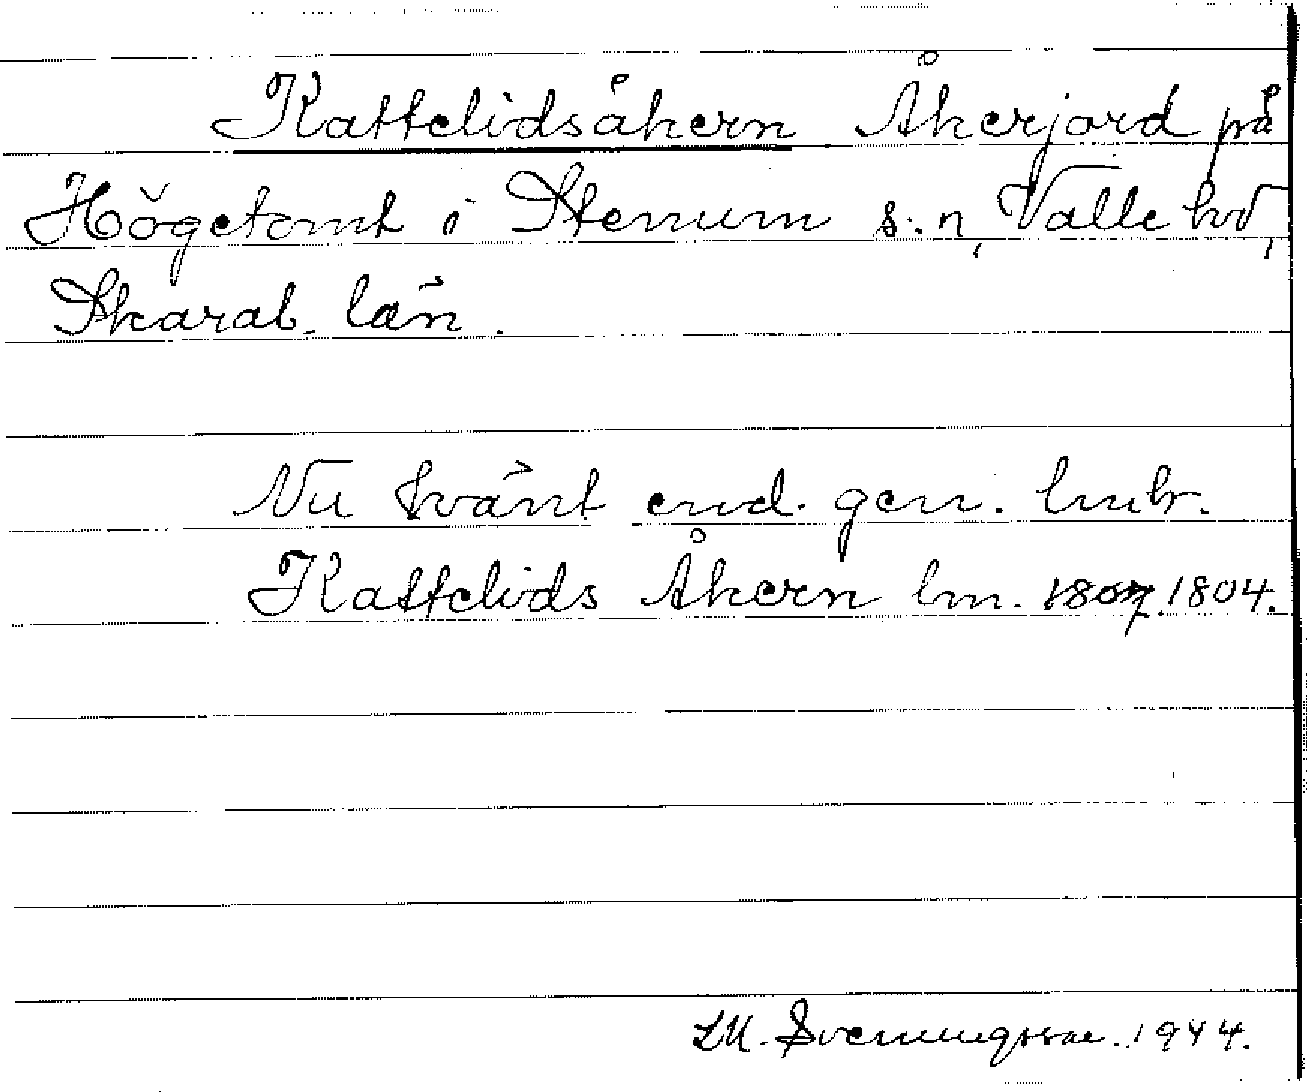 Kattelidsåkern Åkerjord på
Högetomt i Stenum s:n, Valle hd,
Skarab. län.
Nu känt end. gen. lmhr.
Kattelids Åkern lm. 1807 1804.
LM. Svenungsson. 1944.